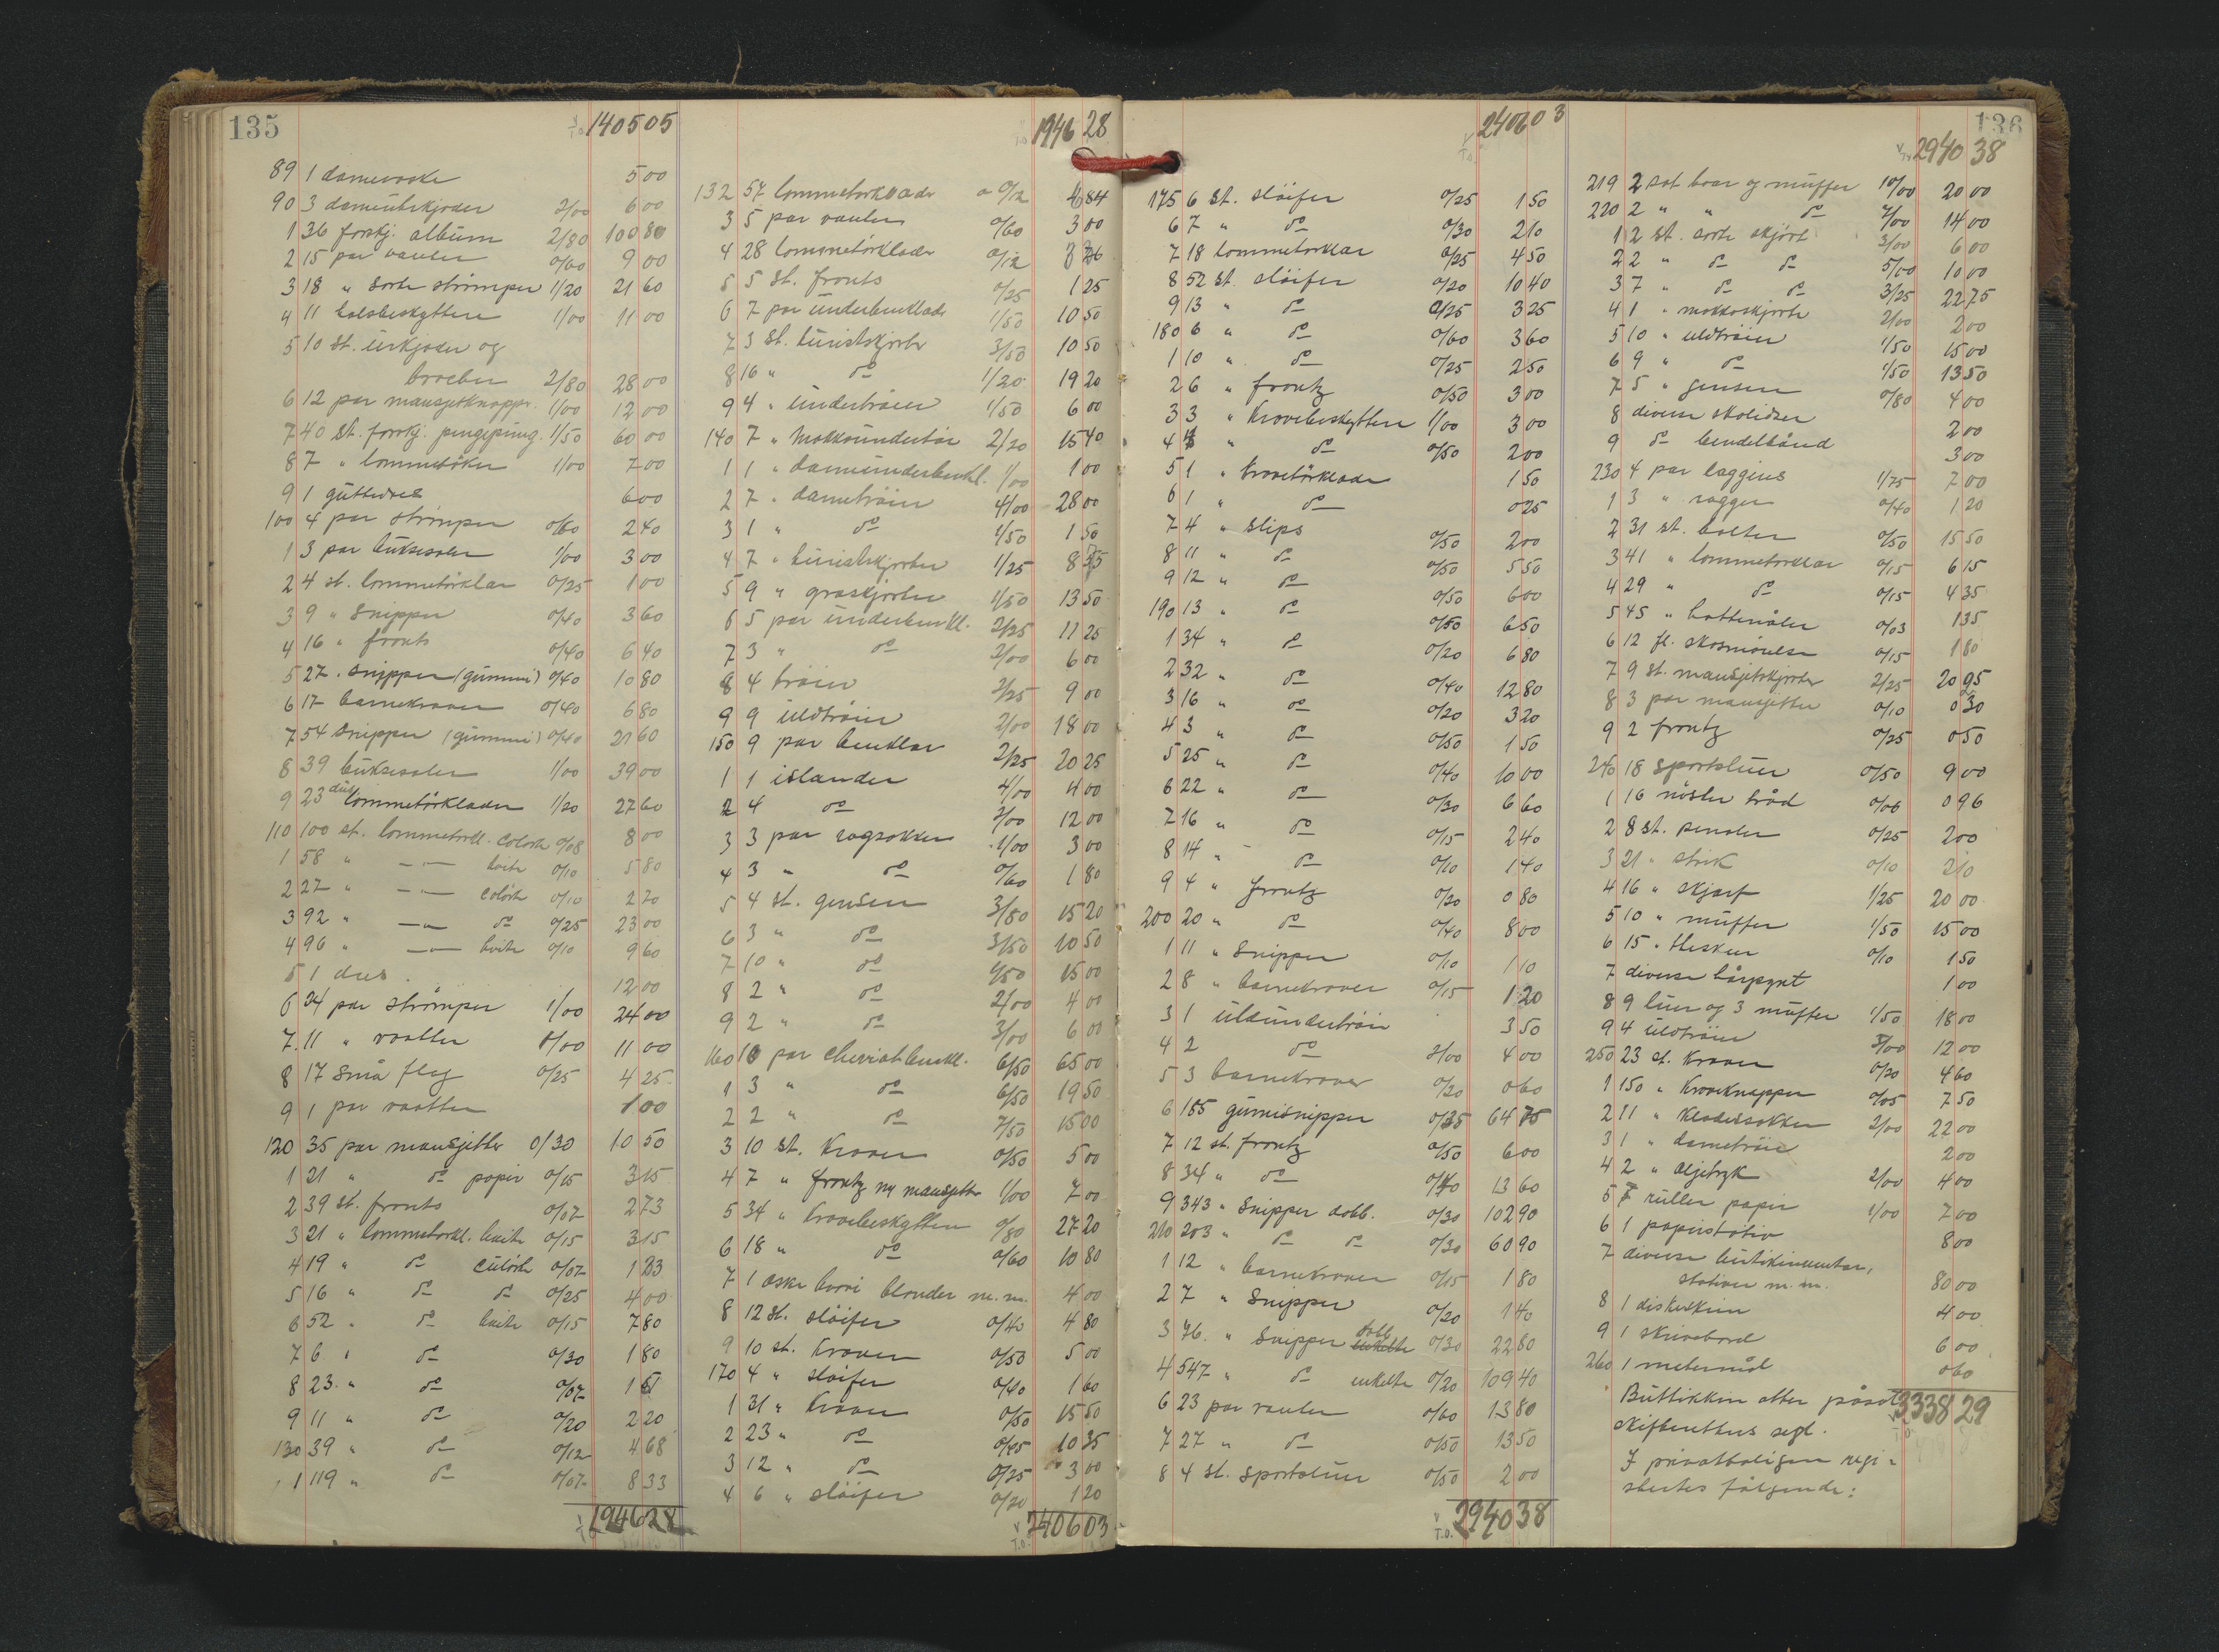 135
140505
89 1 damevaske 5 00
90 3 dameurkjeder 2/00 6 00
1 36 forskj. album 2/80 100 80
2 15 par vanter 0/60 9 00
3 18 " sorte strømper 1/20 21 60
4 11 halsbeskyttere 1/00 11 00
5 10 st. urkjeder og
brocher 2/80 28 00
6 12 par mansjetknapper 1/00 12 00
7 40 st. forskj. pengepung. 1/50 60 00
8 7 " lommebøker 1/00 7 00
9 1 guttedres 6 00
100 4 par strømper 0/60 2 40
1 3 par buksesæler 1/00 3 00
2 4 st. lommetørklær 0/25 1 00
3 9 " snipper 0/40 3 60
4 16 " fronts 0/40 6 40
5 27 " snipper (gummi) 0/40 10 80
6 17 barnekraver 0/40 6 80
7 54 snipper (gummi) 0/40 21 60
8 39 buksesæler 1/00 39 00
9 23 dus lommetørklæder 1/20 27 60
110 100 st. lommetørkl. colørte 0/08 8 00
1 58 " —"— hvite 0/10 5 80
2 27 " —"— colørte 0/10 2 70
3 92 " —"— do 0/25 23 00
4 96 " —"— hvite 0/10 9 60
5 1 dus 12 00
6 24 par strømper 1/00 24 00
7 11 " vaatter 1/00 11 00
8 17 små flag 0/25 4 25
9 1 par vaatter 1 00
120 35 par mansjetter 0/30 10 50
1 21 " do papir 0/15 3 15
2 39 st. fronts 0/07 2 73
3 21 " lommetørkl. hvite 0/15 3 15
4 19 " do culørte 0/07 1 33
5 16 " do do 0/25 4 00
6 52 " do hvite 0/15 7 80
7 6 " do 0/30 1 80
8 23 " do 0/07 1 61
9 11 " do 0/20 2 20
130 39 " do 0/12 4 68
1 119 " do 0/07 8 33
194628
1946 28
132 57 lommetørklæder a 0/12 6 84
3 5 par vanter 0/60 3 00
4 28 lommetørklæder 0/12 3 36
5 5 st. fronts 0/25 1 25
6 7 par underbenklæder 1/50 10 50
7 3 st. turistskjorter 3/50 10 50
8 16 " do 1/20 19 20
9 4 " undertrøier 1/50 6 00
140 7 " Makkoundertøi 2/20 15 40
1 1 " dameunderbenkl. 1/00 1 00
2 7 " dametrøier 4/00 28 00
3 1 " do 1/50 1 50
4 7 " turistskjorter 1/25 8 75
5 9 " graskjorter 1/50 13 50
6 5 par underbenkl. 2/25 11 25
7 3 " do 2/00 6 00
8 4 trøier 2/25 9 00
9 9 uldtrøier 2/00 18 00
150 9 par benklær 2/25 20 25
1 1 islender 4/00 4 00
2 4 do 3/00 12 00
3 3 par ragsokker 1/00 3 00
4 3 " do 0/60 1 80
5 4 st. gensere 3/80 15 20
6 3 " do 3/50 10 50
7 10 " do 1/50 15 00
8 2 " do 2/00 4 00
9 2 " do 3/00 6 00
160 10 par cheviotbenkl. 6/50 65 00
1 3 " do 6/50 19 50
2 2 " do 7/50 15 00
3 10 st. Kraver 0/50 5 00
4 7 " frontz m/ mansjetter 1/00 7 00
5 34 " Kravebeskyttere 0/80 27 20
6 18 " do 0/60 10 80
7 1 æske hvori blonder m. m. 4 00
8 12 st. sløifer 0/40 4 80
9 10 st. Kraver 0/50 5 00
170 4 " sløifer 0/40 1 60
1 31 " Kraver 0/50 15 50
2 23 " do 0/45 10 35
3 12 " do 0/25 3 00
4 6 " sløifer 0/20 1 20
240603
240603
175 6 st. sløifer 0/25 1 50
6 7 " do 0/30 2 10
7 18 lommetørklær 0/25 4 50
8 52 st. sløifer 0/20 10 40
9 13 " do 0/25 3 25
180 6 " do 0/60 3 60
1 10 " do 0/25 2 50
2 6 " frontz 0/50 3 00
3 3 " Kravebeskyttere 1/00 3 00
4 4 " do 0/50 2 00
5 1 " Kravetørklæde 1 50
6 1 " do 0 25
7 4 " slips 0/50 2 00
8 11 " do 0/50 5 50
9 12 " do 0/50 6 00
190 13 " do 0/50 6 50
1 34 " do 0/20 6 80
2 32 " do 0/40 12 80
3 16 " do 0/20 3 20
4 3 " do 0/50 1 50
5 25 " do 0/40 10 00
6 22 " do 0/30 6 60
7 16 " do 0/15 2 40
8 14 " do 0/10 1 40
9 4 " frontz 0/20 0 80
200 20 " do 0/40 8 00
1 11 " Snipper 0/10 1 10
2 8 " barnekraver 0/15 1 20
3 1 uldundertrøie 3 50
4 2 do 2/00 4 00
5 3 barnekraver 0/20 0 60
6 185 gumisnipper 0/35 64 75
7 12 st. frontz 0/50 6 00
8 34 " do 0/40 13 60
9 343 " Snipper dobb. 0/30 102 90
210 203 " do do 0/30 60 90
1 12 " barnekraver 0/15 1 80
2 7 " Snipper 0/20 1 40
3 76 " Snipper dobb enkelte 0/30 22 80
4 547 " do enkelte 0/20 109 40
6 23 par vanter 0/60 13 80
7 27 " do 0/50 13 50
8 4 st. sportsluer 0/50 2 00
294038
136
2940 38
219 2 sæt boar og muffer 10/00 20 00
220 2 " " do 7/00 14 00
1 2 st. sorte skjørt 3/00 6 00
2 2 " do do 5/00 10 00
3 7 " do do 3/25 22 75
4 1 " makkoskjorte 2/00 2 00
5 10 " uldtrøier 1/50 15 00
6 9 " do 1/50 13 50
7 5 " gensere 0/80 4 00
8 diverse skolidser 2 00
9 do bendelbånd 3 00
230 4 par laggins 1/75 7 00
1 3 " ragger 0/40 1 20
2 31 st. belter 0/50 15 50
3 41 " lommetørklær 0/15 6 15
4 29 " do 0/15 4 35
5 45 " hattenåler 0/03 1 35
6 12 fl. skosmørelse 0/15 1 80
7 9 st. mansjetskjorter 2/25 20 25
8 3 par mansjetter 0/10 0 30
9 2 frontz 0/25 0 50
240 18 sportsluer 0/50 9 00
1 16 nøster tråd 0/06 0 96
2 8 st. pensler 0/25 2 00
3 21 " strik 0/10 2 10
4 16 " skjærf 1/25 20 00
5 10 " muffer 1/50 15 00
6 15 " Hesken 0/10 1 50
7 diverse hårpynt 1 00
8 9 luer og 3 muffer 1/50 18 00
9 4 uldtrøier 3/00 12 00
250 23 st. Kraver 0/20 4 60
1 150 " Kraveknapper 0/05 7 50
2 11 " Kladessokker 2/00 22 00
3 1 " dametrøie 2 00
4 2 " oljetryk 2/00 4 00
5 7 ruller papir 1/00 7 00
6 1 papirstativ 8 00
7 diverse butikinventar,
stativer m. m. 80 00
8 1 diskeskrin 4 00
9 1 skrivebord 6 00
260 1 metermål 0 60
Buttikken atter påsat 3338 29
skifterettens segl.
I privatboligen regi-
stertes følgende: